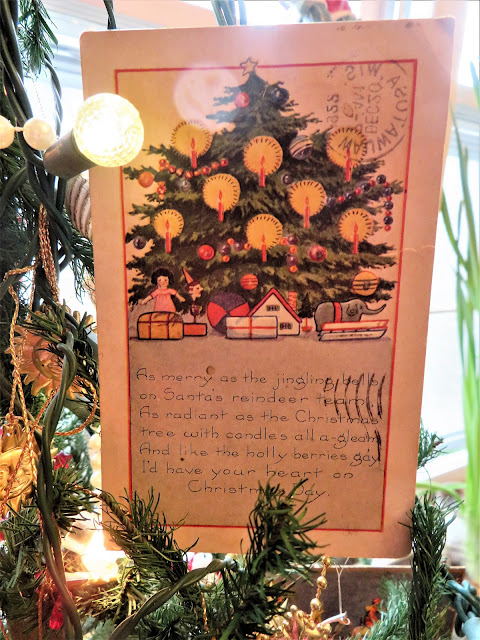 As merry as the jingling bells
on Santa's reindeer team,
As radiant as the Christmas
tree with candles all a-gleam
And like the holly berries gay
I'd have your heart on
Christmas Day.